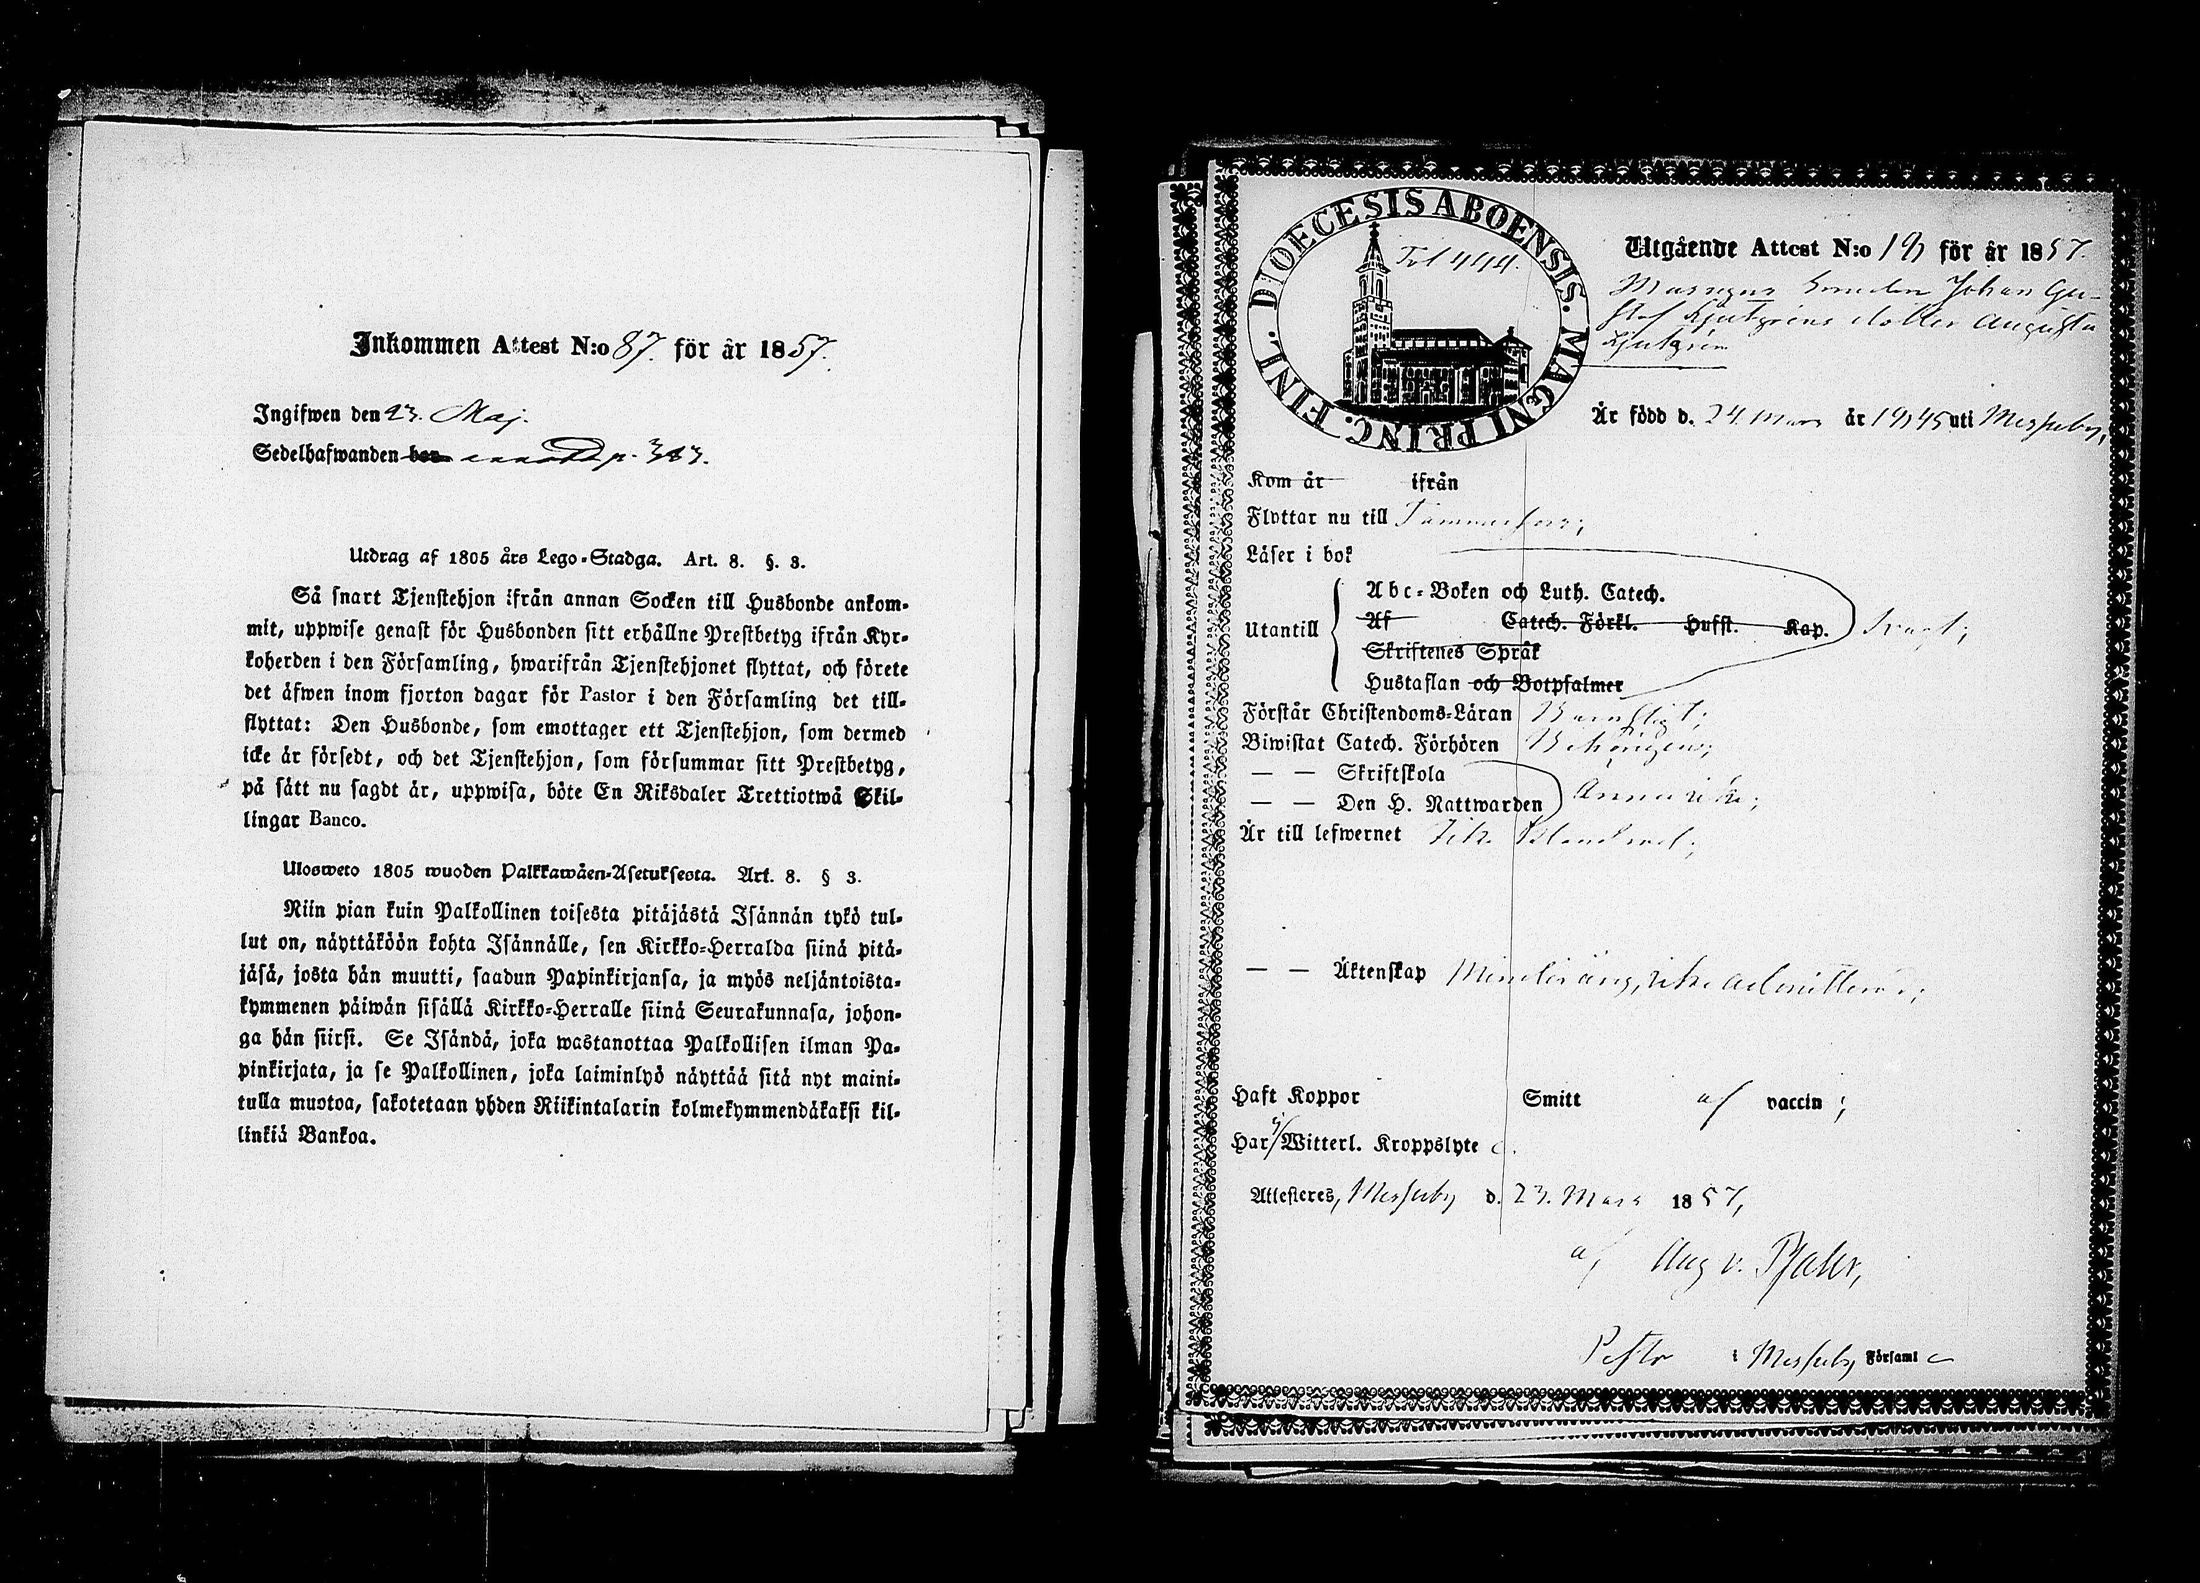 Inkommen Attest N:o 87. för år 1857.
Ingifwen den 23. Maj.
Sedelhafwanden p. 313.
Utdrag af 1805 års Lego-Stadga. Art. 8. §. 3.
Så snart Tjenstehjon ifrån annan Socken till Husbonde ankom-
mit, uppwise genast för Husbonden sitt erhållne Prestbetyg ifrån Kyr-
koherden i den Församling, hwarifrån Tjenstehjonet flyttat, och förete
det äfwen inom fjorton dagar för Pastor i den Församling det till-
flyttat: Den Husbonde, som emottager ett Tjenstehjon, som dermed
icke är försedt, och det Tjenstehjon, som försummar sitt Prestbetyg,
på sätt nu sagdt är, uppwisa, böte En Riksdaler Trettiotwå Skil-
lingar Banco.
Ulosweto 1805 wuoden Palkkawäen-Asetuksesta. Art. 8. § 3.
Niin pian kuin Palkollinen toisesta pitäjästä Isännän tykö tul-
lut on, näyttäköön kohta Isännälle, sen Kirkko-Herralda siinä pitä-
jäsä, josta hän muutti, saadun Papinkirjansa, ja myös neljäntoista-
kymmenen päiwän sisällä Kirkko-Herralle siinä Seurakunnasa, johon-
ga hän siirsi. Se Isändä, joka wastanottaa Palkollisen ilman Pa-
pinkirjata, ja se Palkollinen, joka laiminlyö näyttää sitä nyt maini-
tulla muotoa, sakotetaan yhden Riikintalarin kolmekymmendäkaksi kil-
linkiä Bankoa.
DIOECESIS ABOENSIS. MAGNI PRINC. FINL.
Fol 444.
Utgående Attest N:o 18 för år 1857.
Johan Gu-
staf dotter Augusta
Är född d. 24 Mars år 1845 uti Messuby,
Kom år ifrån
Flyttar nu till Tammerfors;
Läser i bok
Utantill
Abc-Boken och Luth. Catech.
Af Catech. Förkl. Husst. Kap. Svagt;
Skriftenes Språk
Hustaflan och Botpsalmer
Förstår Christendoms-Läran Barnsligt;
Biwistat Catech. Förhören Behörigen;
— — Skriftskola
— — Den H. Nattwarden Ännu icke;
Är till lefwernet Icke klandrad;
— — Äktenskap Minderårig, icke admitterad;
Haft Koppor Smitt af vaccin;
Har ej Witterl. Kroppslyte
Attesteres, Messuby d. 23. Mars 1857,
af Aug v. Pfaler,
Pastor i Messuby Församl